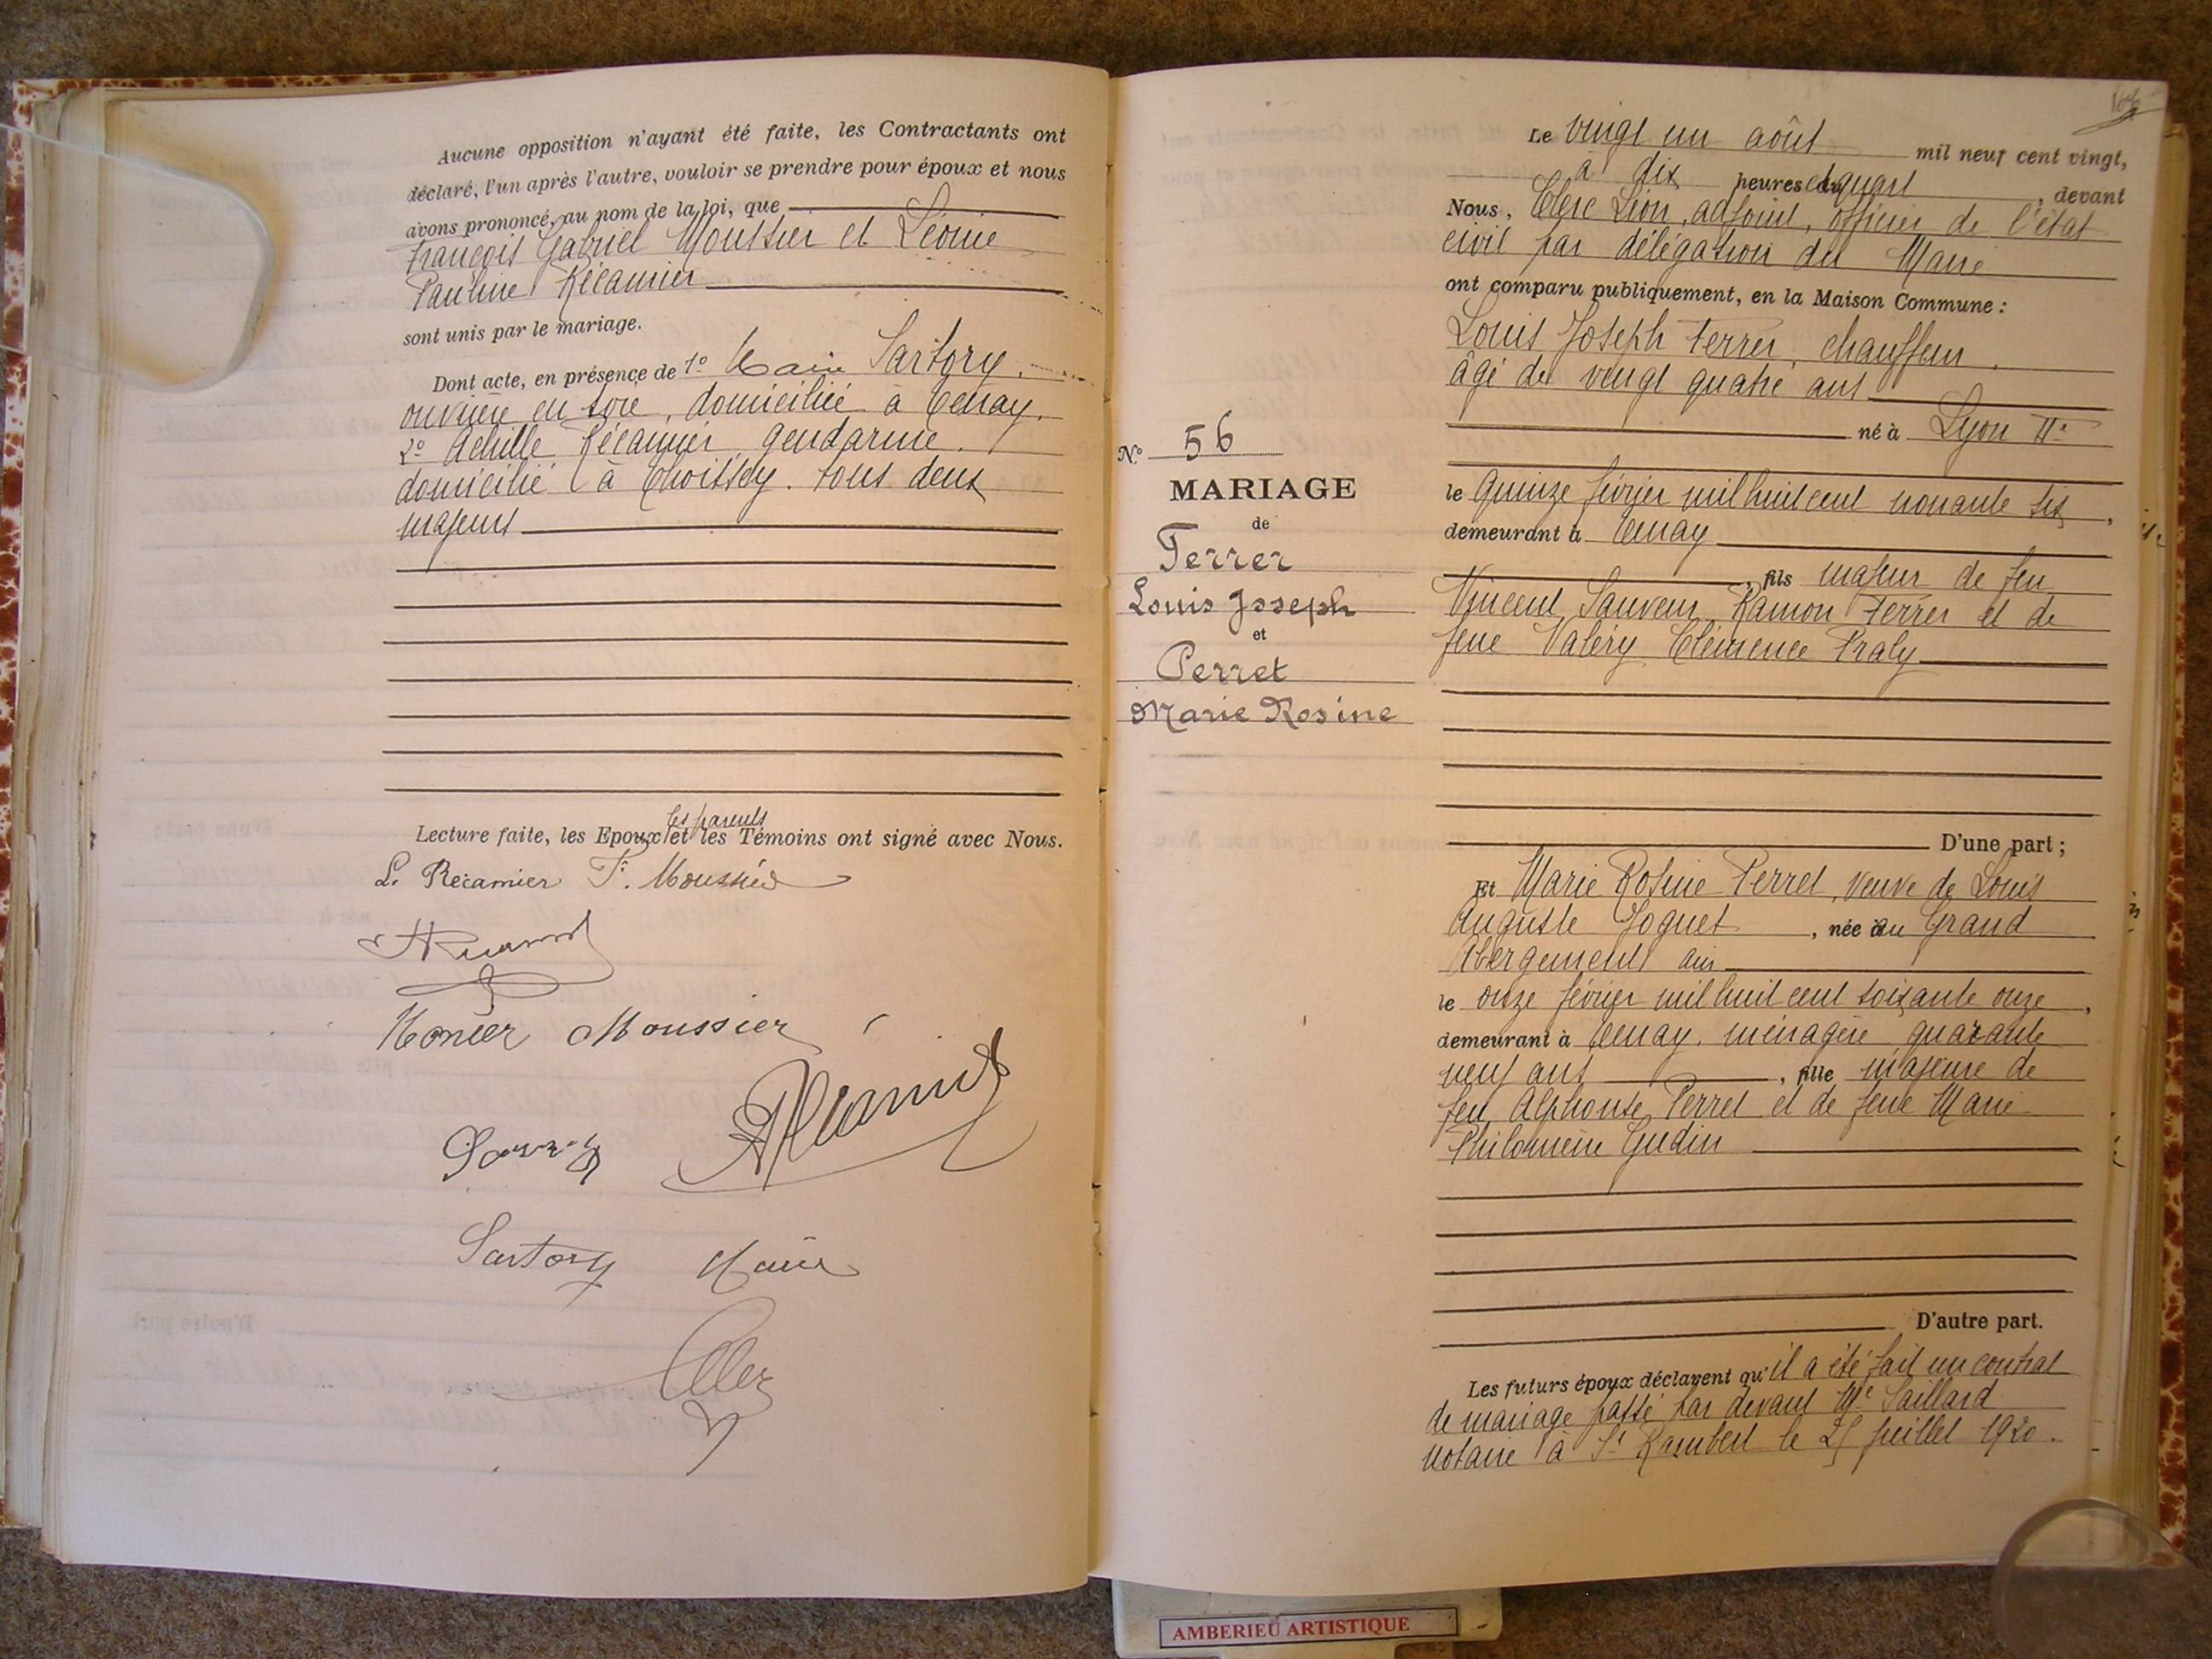 Aucune opposition n'ayant été faite, les Contractants ont
déclaré, l'un après l'autre, vouloir se prendre pour époux et nous
avons prononcé, au nom de la loi, que
François Gabriel Moussier et Léonie
Pauline Récamier
sont unis par le mariage.
Dont acte, en présence de 1° Marie Sartory,
ouvrière en soie, domiciliée à Tenay,
2° Achille Récamier, gendarme,
domicilié à Choissey. tous deux
majeurs
les parents
Lecture faite, les Epoux et les Témoins ont signé avec Nous.
L. Récamier F. Moussier
Moussier
Sartory Marie
Le vingt un août mil neuf cent vingt,
à dix heures et quart, devant
Nous, Clerc Léon, adjoint, officier de l'état
civil par délégation du Maire
ont comparu publiquement, en la Maison Commune :
Louis Joseph Ferrer, chauffeur,
âgé de vingt quatre ans
né à Lyon IIe
le quinze février mil huit cent nonante six,
demeurant à Tenay
, fils majeur de feu
Vincent Sauveur Ramon Ferrer et de
feue Valéry Clémence Praly
D'une part ;
N° 56
MARIAGE
de
Ferrer
Louis Joseph
et
Perret
Marie Rosine
Et Marie Rosine Perret, veuve de Louis
Auguste Joguet, née au Grand
Abergement ain
le onze février mil huit cent soixante onze,
demeurant à Tenay, ménagère quarante
neuf ans, fille majeure de
feu Alphonse Perret et de feue Marie
Philomène Gudin
D'autre part.
Les futurs époux déclarent qu'il a été fait un contrat
de mariage passé par devant Me Saillard
notaire à St Rambert le 25 juillet 1920.
AMBERIEU ARTISTIQUE